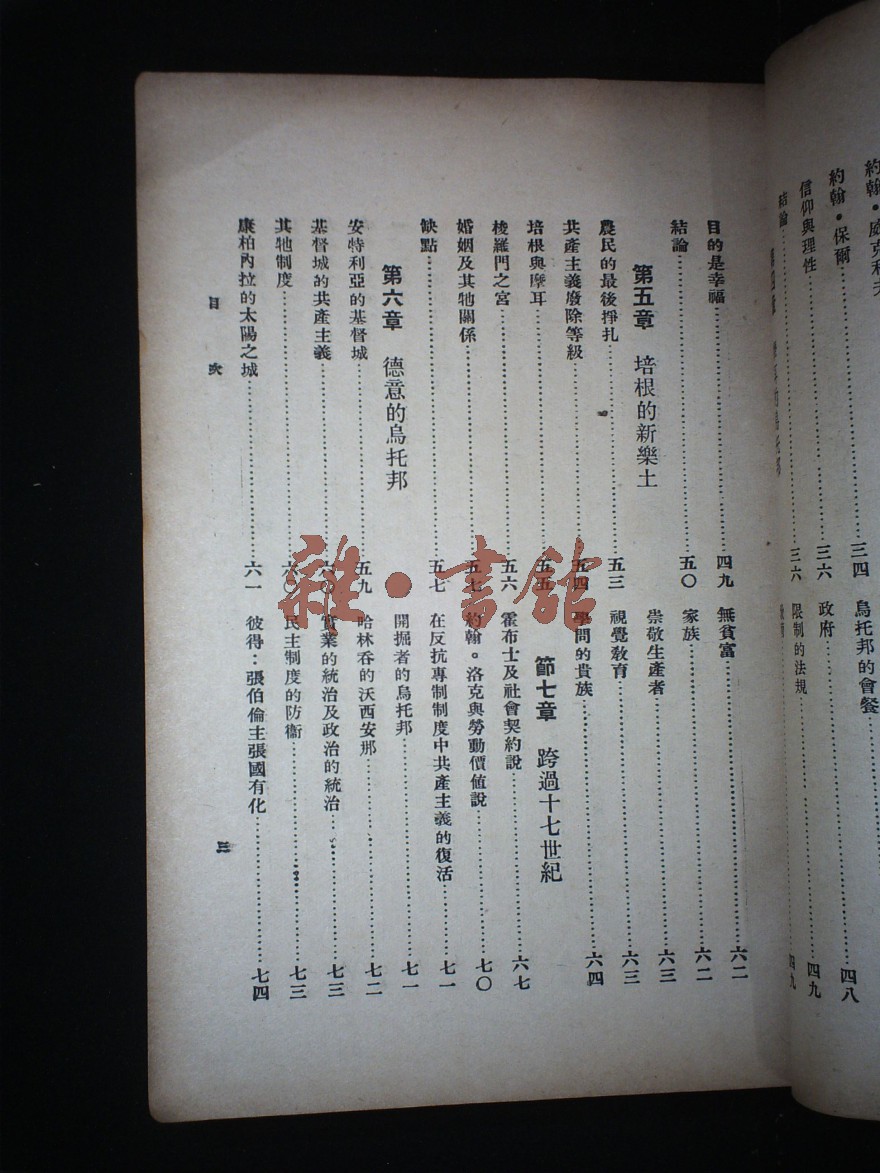 約翰•威克利夫
約翰•保爾……三四
信仰與理性……三六
結論……三六
烏托邦的會餐……四八
政府……四九
限制的法規……四九
目的是幸福……四九
結論……五〇
第五章 培根的新樂土
農民的最後掙扎……五三
共產主義廢除等級……五四
培根與摩耳……五五
梭羅門之宮……五六
婚姻及其牠關係……五七
缺點……五七
第六章 德意的烏托邦
安特利亞的基督城……五九
基督城的共產主義……六〇
其牠制度……六〇
康柏內拉的太陽之城……六一
無貧富……六二
家族……六二
崇敬生產者……六三
視覺敎育……六三
學問的貴族……六四
節七章 跨過十七世紀
霍布士及社會契約說……六七
約翰。洛克與勞動價値說……七〇
在反抗專制制度中共產主義的復活……七一
開掘者的烏托邦……七一
哈林呑的沃西安那……七二
實業的統治及政治的統治……七三
民主制度的防衞……七三
彼得：張伯倫主張國有化……七四
目 次
三
雜•書館